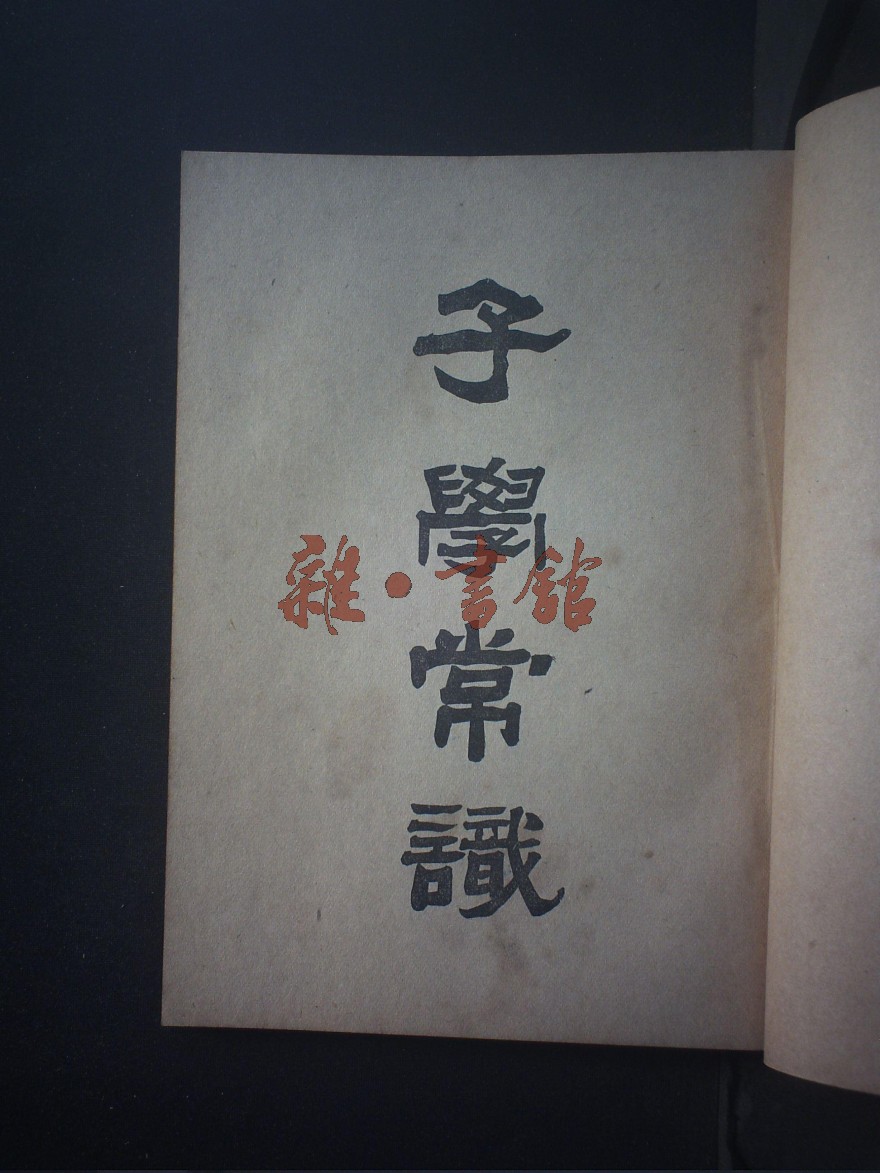 子學常識
雜·書館